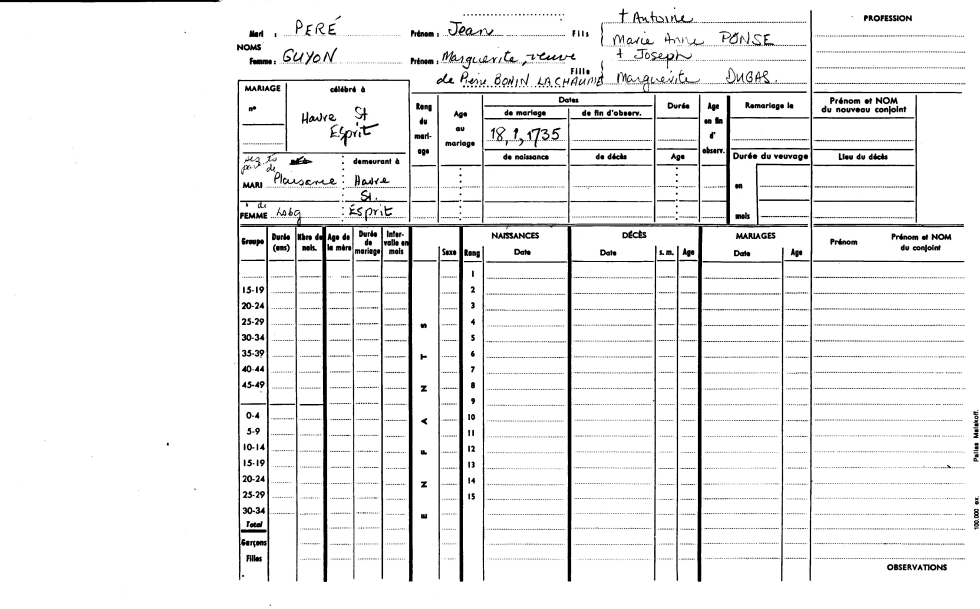 † Antoine
PROFESSION
Mari : PERÉ Prénom : Jean Fils Marie Anne PONSE
NOMS † Joseph
Femme : GUYON Prénom : Marguerite, veuve
de Pierre BONIN LACHAUME Fille Marguerite DUGAS.
MARIAGE célébré à
n° Havre St
Esprit
Rang du mari-age
Age au mariage
Dates
de mariage de fin d'observ.
18, 1, 1735
de naissance de décès
Durée
Age
Age en fin d' observ.
Remariage le
Durée du veuvage
en
mois
Prénom et NOM
du nouveau conjoint
Lieu du décès
demeurant à
MARI Plaisance : Havre
St.
de
FEMME Lsbg : Esprit
Groupe Durée (ans) Nbre de nais. Age de la mère Durée de mariage Inter-valle en mois Sexe Rang
NAISSANCES DÉCÈS MARIAGES
Date Date s. m. Age Date Age
Prénom Prénom et NOM du conjoint
ENFANTS
1
15-19 2
20-24 3
25-29 4
30-34 5
35-39 6
40-44 7
45-49 8
9
0-4 10
5-9 11
10-14 12
15-19 13
20-24 14
25-29 15
30-34
Total
Garçons
Filles
OBSERVATIONS
100.000 ex. Pallas Malakoff.